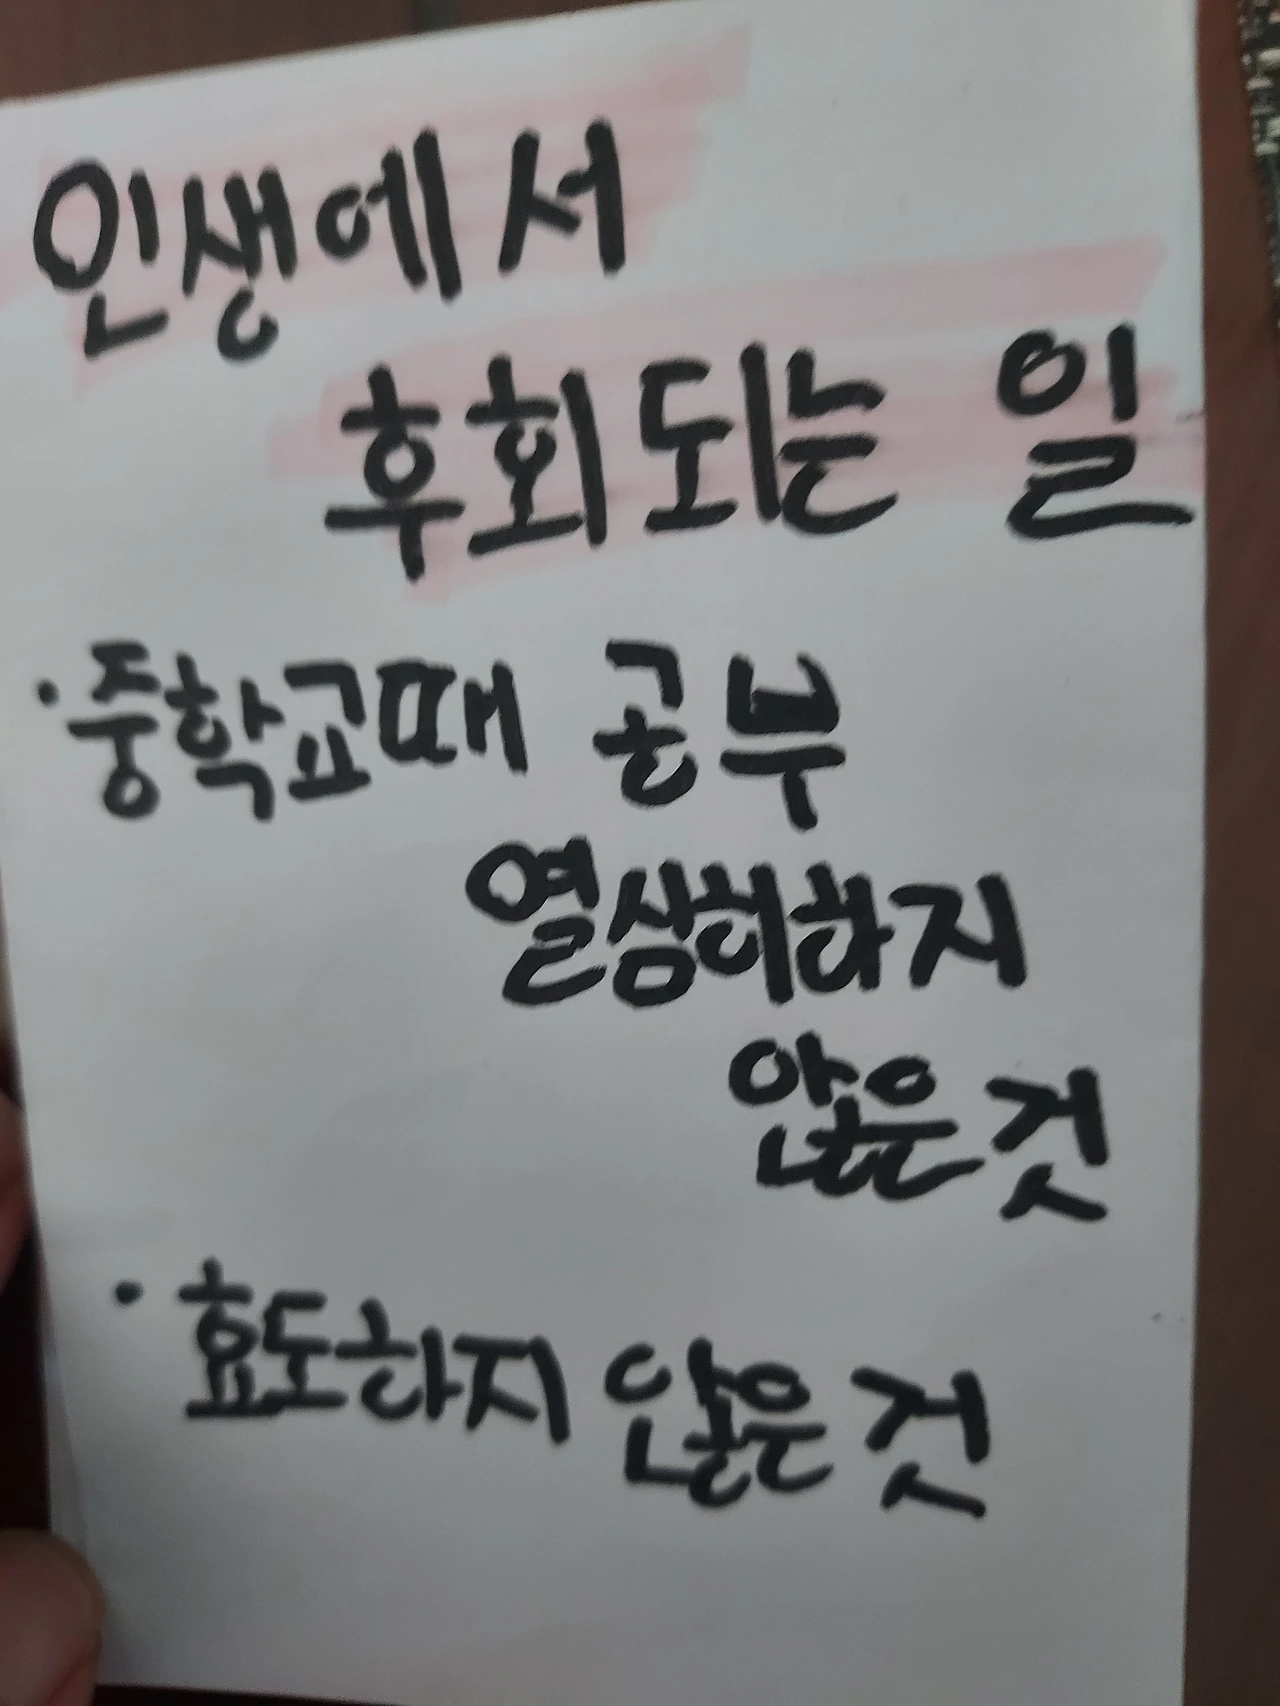 인생에서
후회되는 일
·중학교때 공부
열심히하지
않은것
·효도하지 않은것